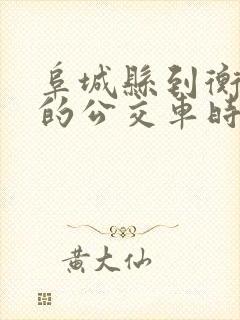 阜城縣到衡
的公交車時
黃大仙